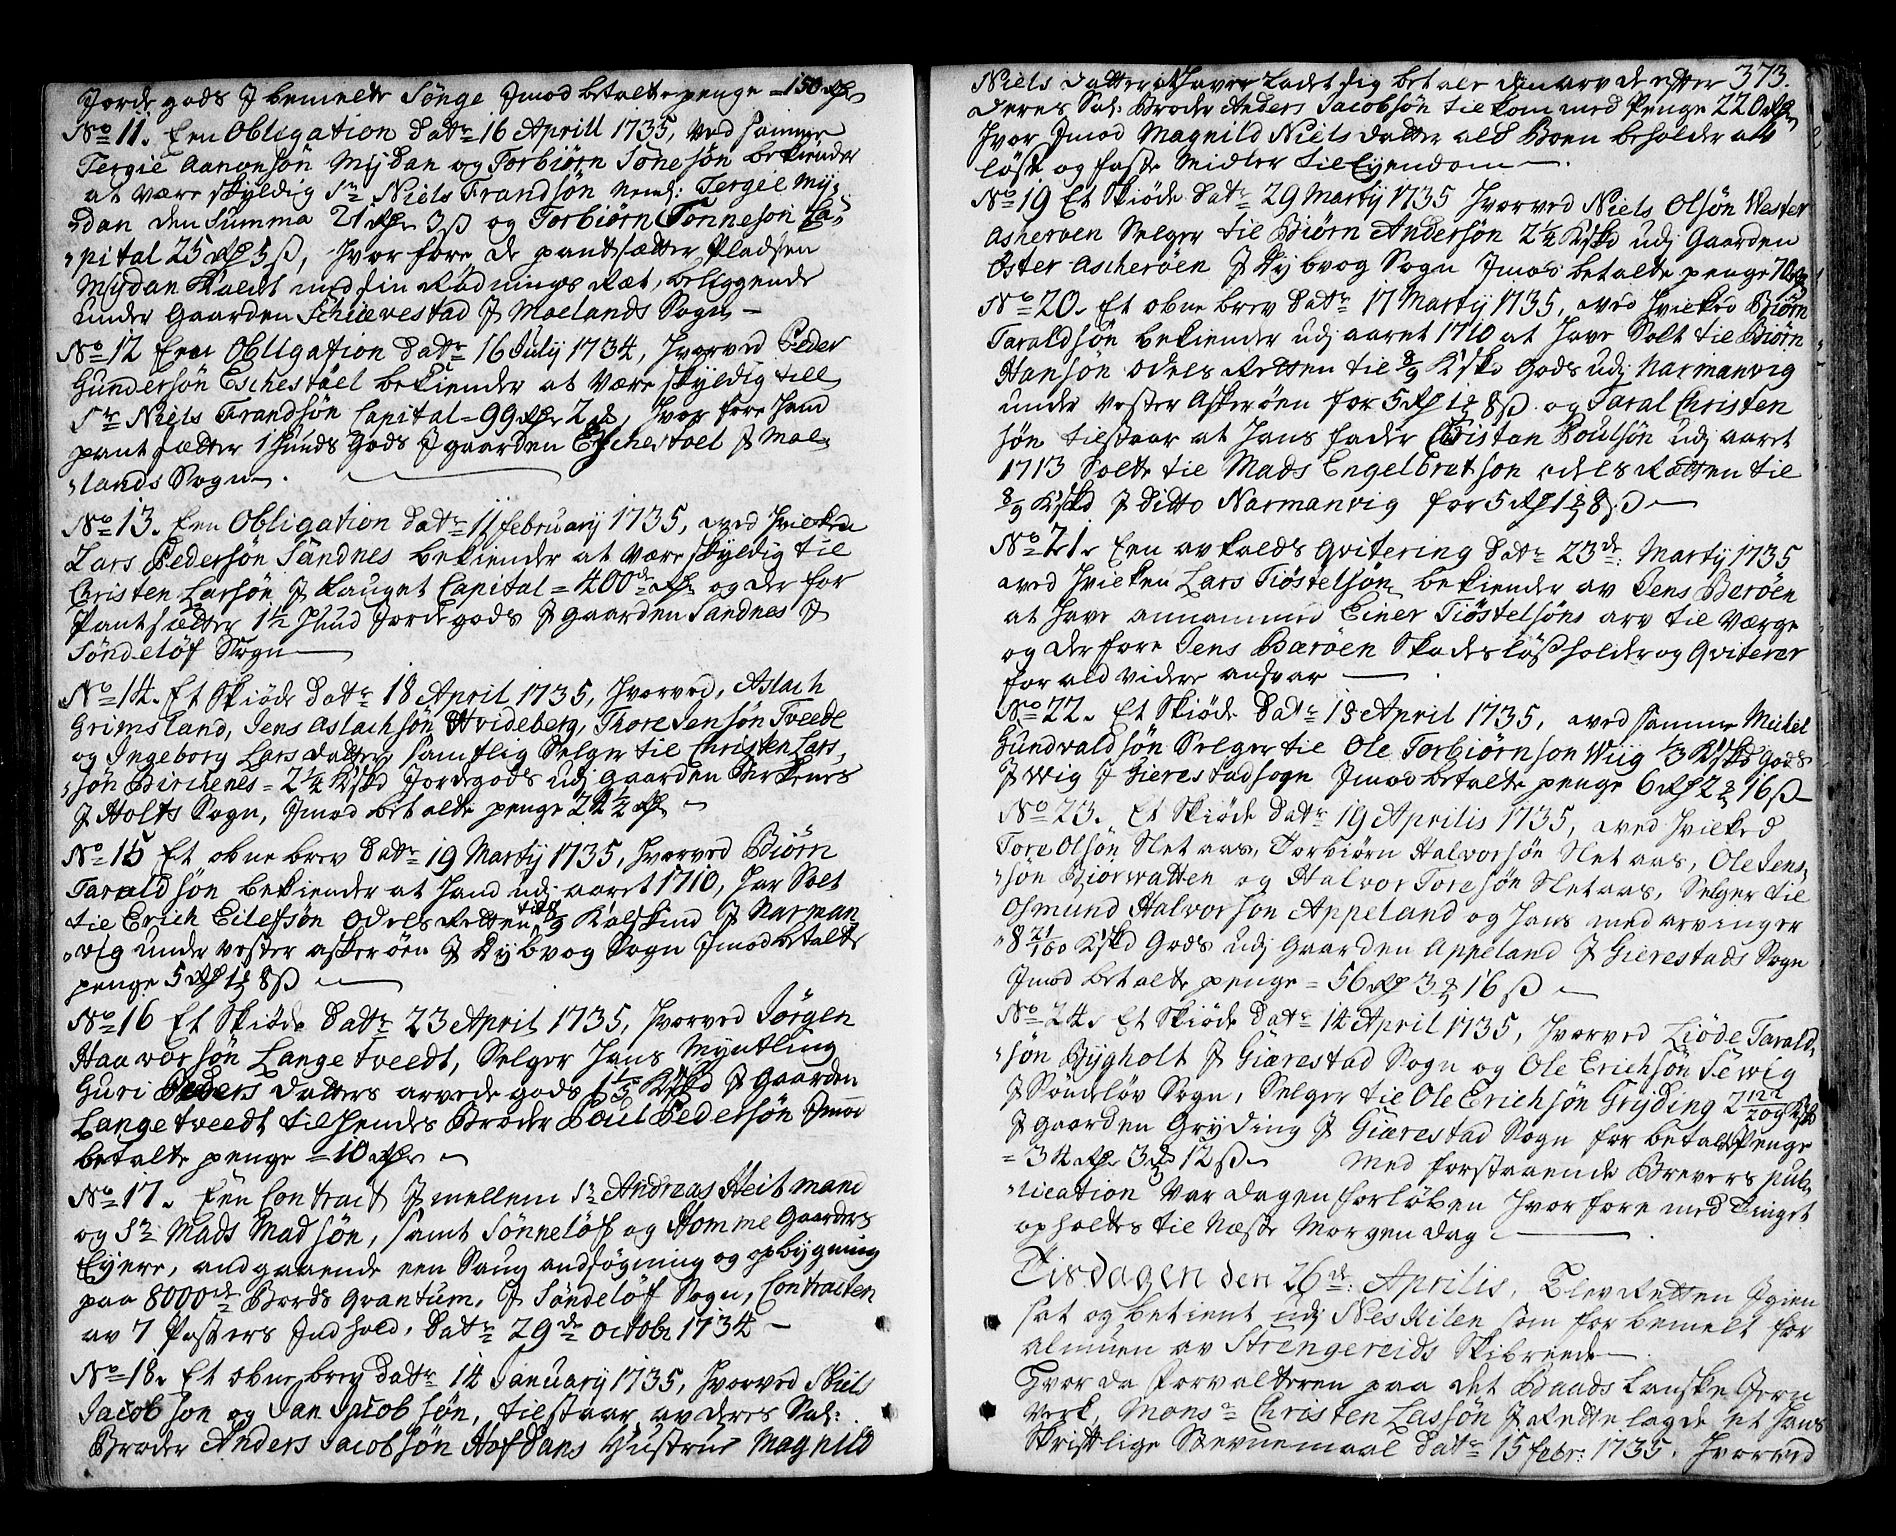 Jordegods J bemelte Sönge Jmod betalte penge = 150 Rdr
No 11. Een Obligation Datr: 16 Aprill 1735, ved samme
Tergie Aanonsön Mijdan og Torbiörn Tönesön bekiender
at være skyldig Sr Niels Frandsön neml: Tergie Mij-
dan den Summa 21 Rdr 3 ß og Torbiörn Tönneson Ca-
pital 25 Rdr 5 ß, Hvor fore de pantsætter Pladsen
Mijdan Kaldt med sin Rödnings Ræt, beliggende
under Gaarden Schievestad J Moelands Sogn –
No 12 Een Obligation Datr: 16 Julij 1734, Hvorved Peder
Gundersön Eschestöel bekiender at være skyldig till
Sr Niels Frandsön Capital = 99 Rdr 2, Hvor fore Hand
pantsætter 1 Huuds Gods J gaarden Eschestoel J Moe-
lands Sogn.
No 13. Een Obligation Datr: 11 february 1735, ved hvilken
Lars Pedersön Sandnes bekiender at være skyldig til
Christen Larsön J Hauget Capital = 400 de Rdr og der for
Pantsætter 1 1/2 Huud Jordegods J gaarden Sandnes J
Söndelöf Sogn
No 14. Et Skiöde Datr: 18 April 1735, Hvorved, Aslach
Grimsland, Jens Aslachsön Hvideberg, Thore Jensön Tveede
og Ingeborg Larsdatter, samtlig Selger til Christen Lars-
sön Birchenes = 2 1/2 Kskd Jordegods udj gaarden Berkenes
J Holts Sogn, Jmod betalte penge 24 1/2 Rdr –
No 15 Et obne brev Datr: 19 Martij 1735, Hvorved Biörn
Taraldsön bekiender at Hand udj aaret 1710, har Solt
til Erich Eilefsön Odels Retten till 8/9 Kalskind J Narman
vig under vester askeröen J Dybvog Sogn Jmod betalte
penge 5 Rdr 1 8 ß –
No 16 Et Skiöde Datr: 23 April 1735, Hvorved Jörgen
Haavorsön Langetveedt, Selger Hans Myntling
Guri Peders datters arvede gods 1 1/5 Kskd J gaarden
Langetveedt til Hendes Broder Poul Pedersön Jmod
betalte penge = 10 Rdr –
No 17. Een Contract J mellem Sr Andreas Heitmand
og Sr Mads Madsön, samt Sönnelöff og Homme Gaarders
Eyere, andgaaende een Saug andsögning og opbygning
paa 8000 de Bords Qvantum, J Söndelöf Sogn, Contracten
av 7 Posters Indhold. Datr: 29 de octobr 1734 –
No 18. Et obne brev Datr: 14 January 1735, Hvorved Niels
Jacobson og Jan Jacobsön, tilstaar av deres Sal:
Broder Anders Jacobsön Hofdans Hustrue Magnild
Niels datter at have Ladet sig betale den arv de etter 373.
deres Sal: Broder Anders Jacobsön tilkom med Penge 220 Rdr
Hvor Jmod Magnild Niels datter all Boen beholder all
löst og faste Midler til Eyendom –.
No 19 Et Skiöde Datr: 29 Martij 1735 Hvorved Niels Olsön Wester
Asheröen Selger til Biörn Andersön 2 1/4 Kskd udj Gaarden
Öster ascheröen J Dybvog Sogn Jmod betalte penge 70 Rdr
No 20. Et obne brev Datr: 17 Martij 1735, ved Hvilked Biörn
Taraldsön bekiender udj aaret 1710 at have Solt til Biörn
Hansön Odels Retten til 8/9 Kskd Gods udj Narmanvig
under Vester Askeröen for 5 Rdr 1 8 ß. og Taral Christen
sön tilstaar at Hans fader Christen Poulsön udj aaret
1713 Solte til Mads Engelbretson odels Retten til
8/9 Kskd J Ditto Narmanvig for 5 Rdr 1 8 ß –
No 21. Een avkalds Qvitering Datr: 23 de: Martij 1735
ved Hvilken Lars Tiöstelsön bekiender av Jens Beröen
at have annammed Einer Tiöstelsöns arv til værge
og der fore Jens Bæröen Skadeslös holder og Qviterer
for ald videre ansvar –
No 22. Et Skiöde Datr: 18 April 1735, ved samme Michel
Gundvaldsön Selger til Ole Torbiörnson Wiig 2/3 Kskd Gods
J Wiig J Gierestad sogn Jmod betalte penge 6 Rdr 2 16 ß –
No 23. Et Skiöde Datr: 19 Aprilis 1735, ved Hvilked
Tore Olsön Sletaas, Torbiörn Halvorsön Sletaas, Ole Jens-
sön Biorwatten og Halvor Toresön Sletaas, Selger til
Osmund Halvorson Appeland og Hans med arvinger
8 21/160 Kskd Gods udj Gaarden Appeland J Gierestads Sogn
Jmod betalte penge = 56 Rdr 3 16 ß –
No 24. Et Skiöde Datr: 14 April 1735, Hvorved Liöde Tarald-
sön Bygholt J Giærestad Sogn og Ole Erichsön Sevig
J Söndeløv Sogn, Selger til Ole Erichsön Gryding 2 122/209 Kskd
J gaarden Gryding J Giærestad Sogn for betalt Penge
= 34 Rdr 3 12 ß – Med forstaaende Brevers pub-
lication var dagen forløben Hvor fore med Tinget
opholtes til Næste Morgen dag –
Tisdagen den 26 de: Aprilis, blev Retten Jgien
sat og betient udj Nes Kilen som forbemelt for
almuen av Strengereids Skibreede –.
Hvor da forvalteren paa det Baads Lanske Jern
Verk, Monsr Christen Lassön J Rette lagde et Hans
Skriftlige Stevnemaal Datr: 15 febr: 1735. Hvorved